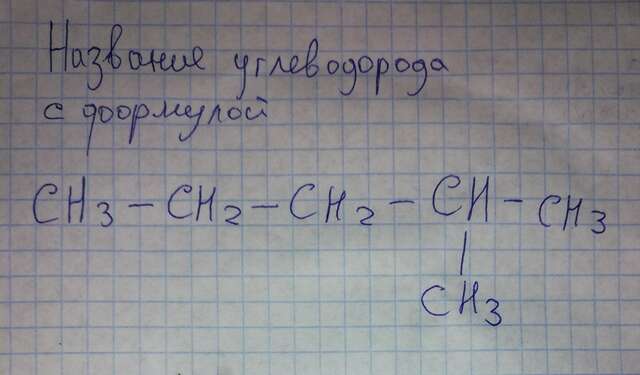 Название углеводорода
с формулой
CH3 - CH2 - CH2 - CH - CH3
|
CH3